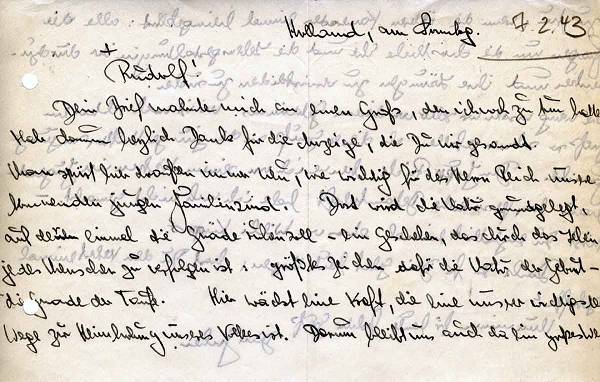 Holland, am Sonntag. 7.2.43
+
Rudolf!
Dein Brief mahnte mich an einen Gruß, den ich noch zu tun hatte
Hab darum herzlich Dank für die Anzeige, die Du mir gesandt.
Man spürt hier draußen immer neu, wie wichtig für des Herrn Reich unsre
kommenden jungen Familien sind. Dort wird die Natur grundgelegt,
auf der einmal die Gnade ruhen soll - ein Geschehen, das durch das Leben
jedes Menschen zu verfolgen ist: die Natur der Geburt -
die Gnade der Taufe. Hier wächst eine Kraft, die eine unsrer wichtigsten
Wege zur Heimholung unseres Volkes ist. Darum bleibt uns auch da ein